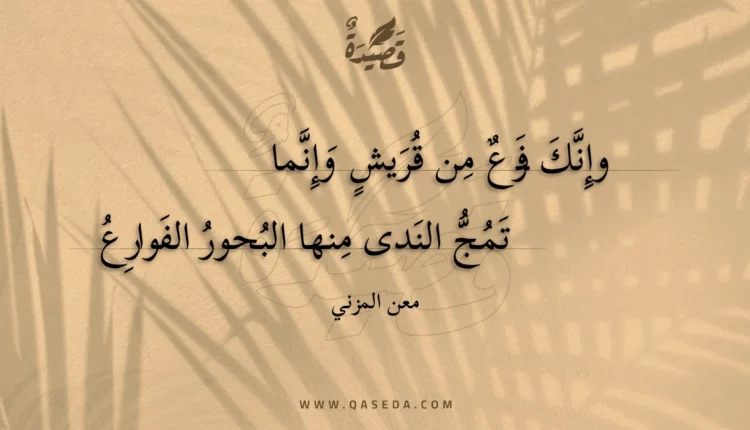 قَصِيْدَةٌ
وإِنَّكَ فَرعٌ مِن قُرَيشٍ وَإِنَّما
تَمُجُّ النَدى مِنها البُحورُ الفَوارِعُ
معن المزني
WWW.QASEDA.COM